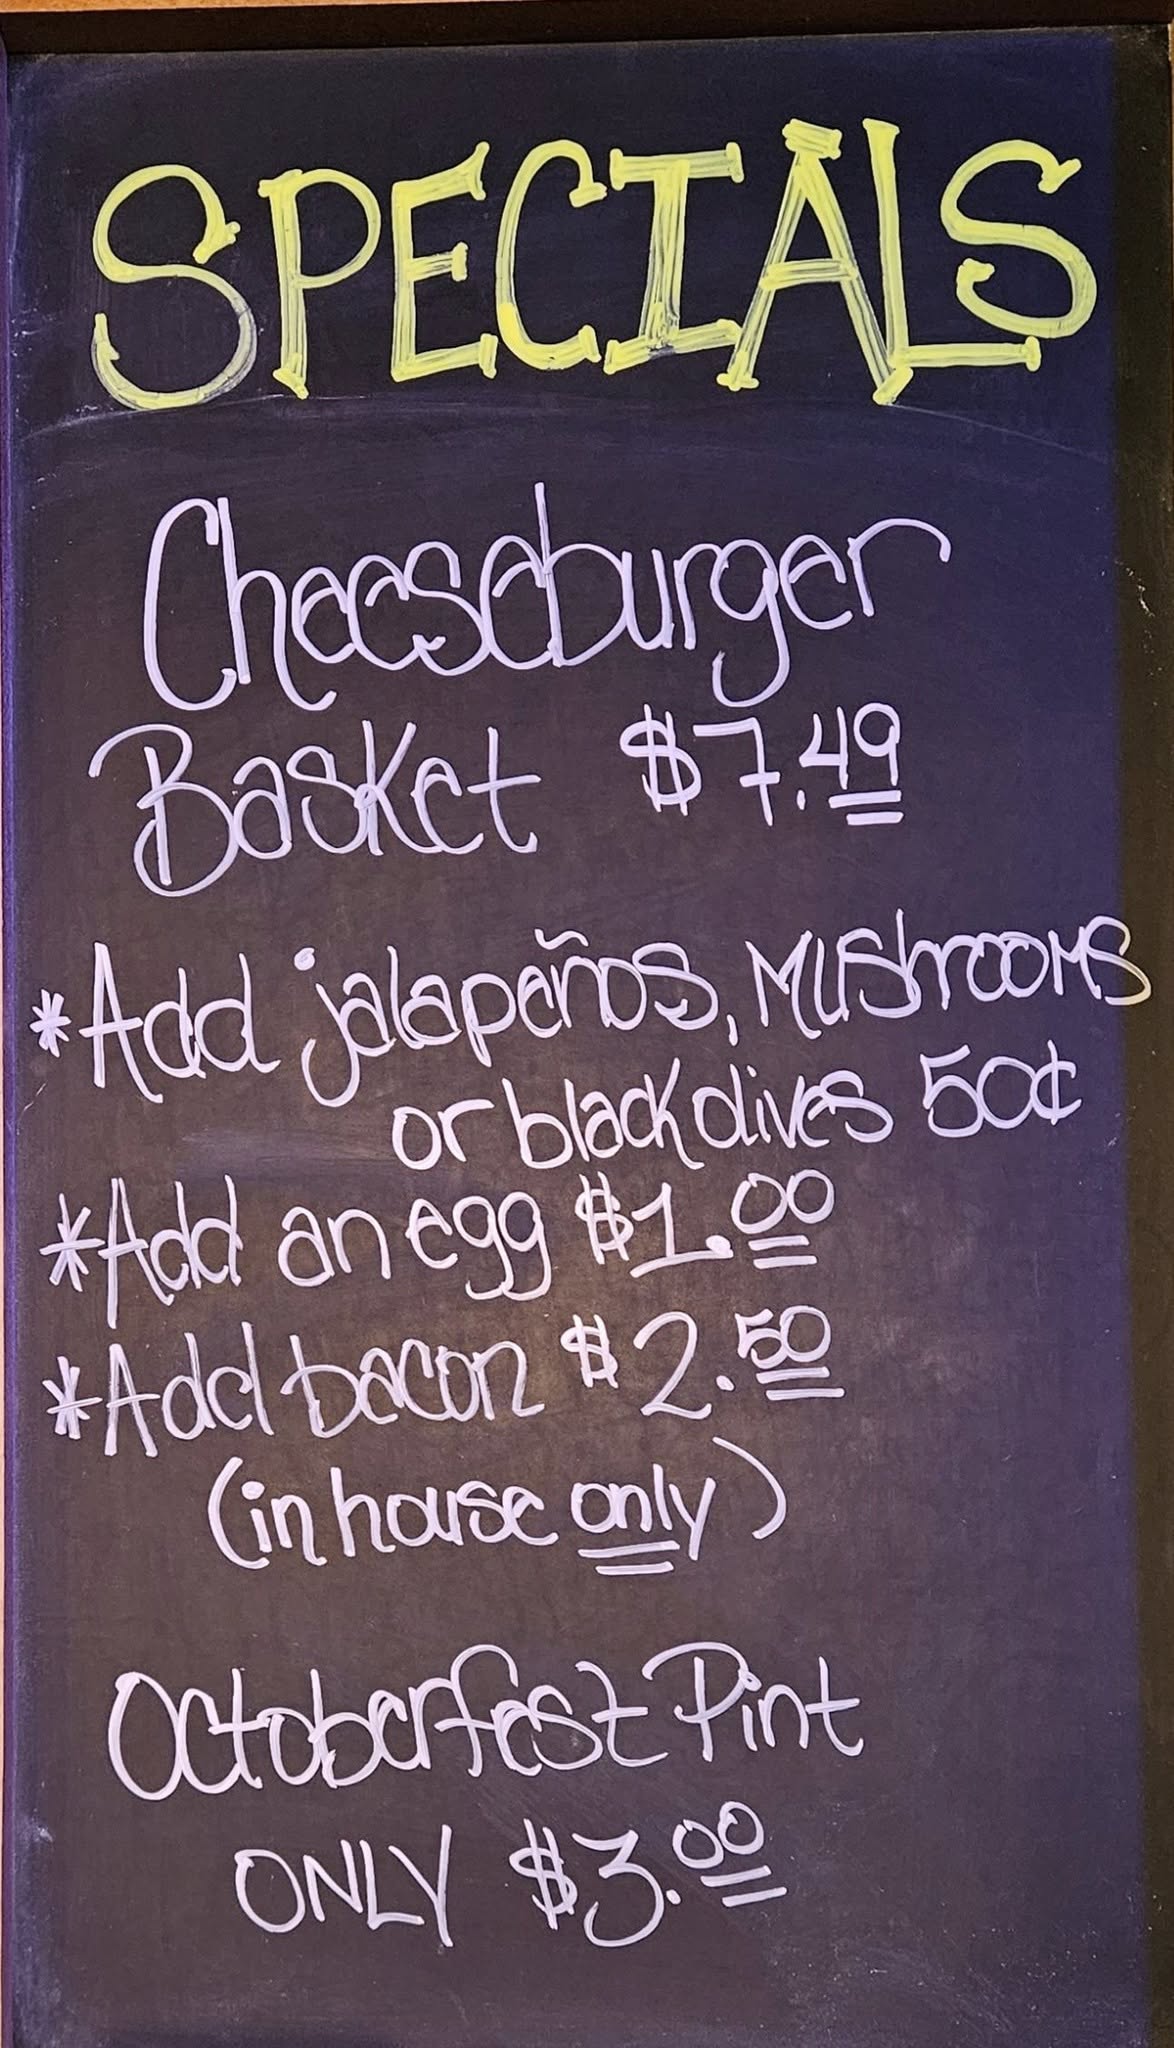 SPECIALS
Cheeseburger
Basket $7.49
*Add jalapeños, Mushrooms
or black olives 50¢
*Add an egg $1.00
*Add bacon $2.50
(in house only)
Octoberfest Pint
ONLY $3.00